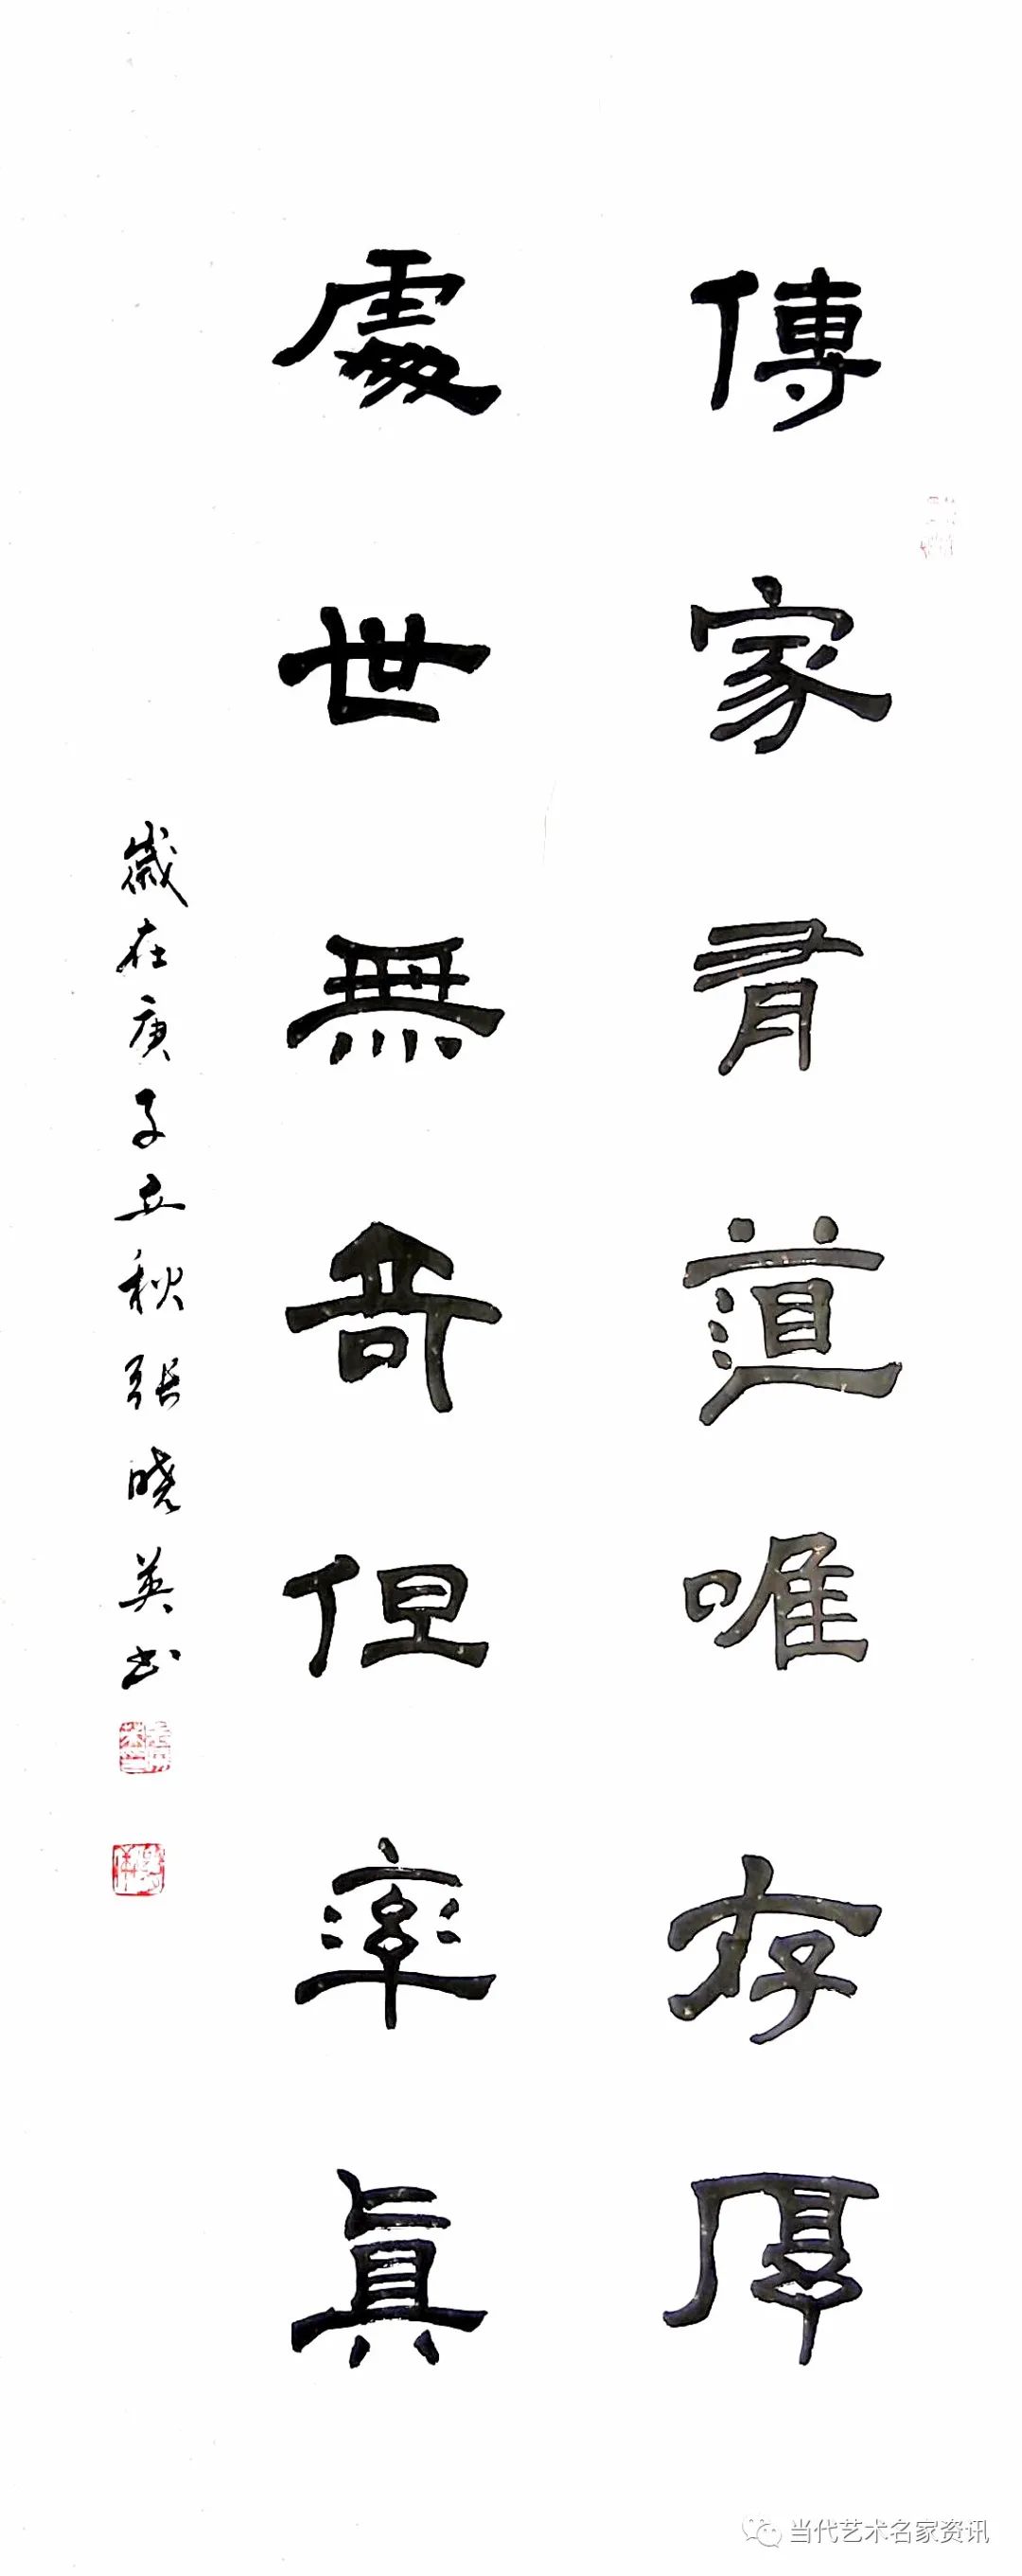 傳家有道唯存厚
處世無奇但率真
歲在庚子立秋张晓英书
当代艺术名家资讯